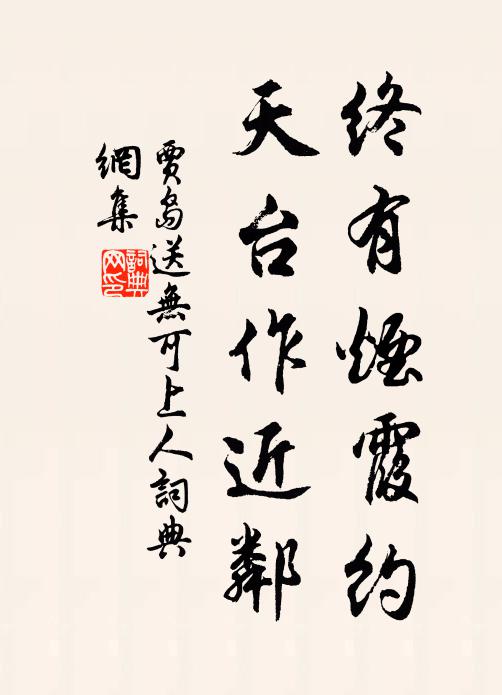 終有煙霞約
天台作近鄰
賈島送無可上人詞典
網集
詞典
网印